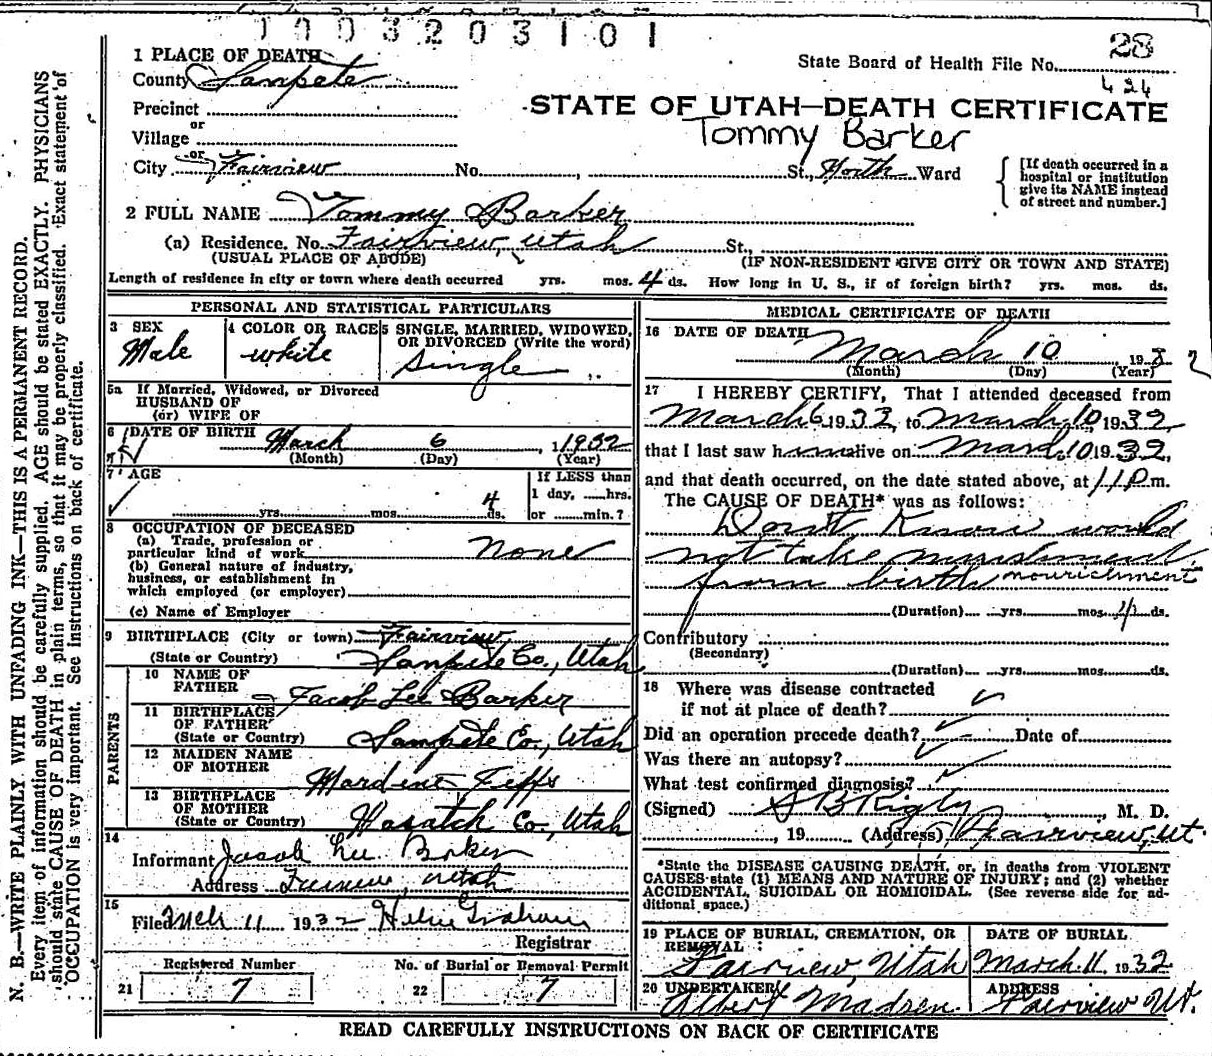 1003203101
28
State Board of Health File No.
424
1 PLACE OF DEATH
County Sanpete
STATE OF UTAH—DEATH CERTIFICATE
Precinct
Tommy Barker
or
Village
or
City Fairview No. , St., North Ward
[If death occurred in a hospital or institution give its NAME instead of street and number.]
2 FULL NAME Tommy Barker
(a) Residence. No. Fairview, Utah St.,
(USUAL PLACE OF ABODE) (IF NON-RESIDENT GIVE CITY OR TOWN AND STATE)
Length of residence in city or town where death occurred yrs. mos. 4 ds. How long in U. S., if of foreign birth? yrs. mos. ds.
PERSONAL AND STATISTICAL PARTICULARS
3 SEX
Male
4 COLOR OR RACE
white
5 SINGLE, MARRIED, WIDOWED, OR DIVORCED (Write the word)
Single
5a If Married, Widowed, or Divorced
HUSBAND OF
(or) WIFE OF
6 DATE OF BIRTH March 6, 1932
(Month) (Day) (Year)
7 AGE
yrs. mos. 4 ds.
If LESS than
1 day, ......hrs.
or ......min.?
8 OCCUPATION OF DECEASED
(a) Trade, profession or
particular kind of work None
(b) General nature of industry,
business, or establishment in
which employed (or employer)
(c) Name of Employer
9 BIRTHPLACE (City or town) Fairview
(State or Country) Sanpete Co., Utah
PARENTS
10 NAME OF
FATHER Jacob Lee Barker
11 BIRTHPLACE
OF FATHER
(State or Country) Sanpete Co., Utah
12 MAIDEN NAME
OF MOTHER
13 BIRTHPLACE
OF MOTHER
(State or Country) Wasatch Co., Utah
14
Informant Jacob Lee Barker
Address Fairview, Utah
15
Filed Mch 11 1932 Helen Graham
Registrar
Registered Number
21 7
No. of Burial or Removal Permit
22 7
MEDICAL CERTIFICATE OF DEATH
16 DATE OF DEATH
March 10 1932
(Month) (Day) (Year)
17 I HEREBY CERTIFY, That I attended deceased from
March 6 1932, to March 10, 1932
that I last saw him alive on March 10 1932,
and that death occurred, on the date stated above, at 11 P m.
The CAUSE OF DEATH* was as follows:
Dont Know would
not take nourishment
from birth nourichment
(Duration) yrs. mos. 4 ds.
Contributory
(Secondary)
(Duration) yrs. mos. ds.
18 Where was disease contracted
if not at place of death?
Did an operation precede death? Date of
Was there an autopsy?
What test confirmed diagnosis?
(Signed) S B Rigby, M. D.
, 19 (Address) Fairview, Ut.
*State the DISEASE CAUSING DEATH, or, in deaths from VIOLENT
CAUSES state (1) MEANS AND NATURE OF INJURY; and (2) whether
ACCIDENTAL, SUICIDAL OR HOMICIDAL. (See reverse side for ad-
ditional space.)
19 PLACE OF BURIAL, CREMATION, OR
REMOVAL:
Fairview, Utah
DATE OF BURIAL
March 11 1932
20 UNDERTAKER
Albert Madsen
ADDRESS
Fairview Ut.
READ CAREFULLY INSTRUCTIONS ON BACK OF CERTIFICATE
N. B.—WRITE PLAINLY WITH UNFADING INK—THIS IS A PERMANENT RECORD.
Every item of information should be carefully supplied. AGE should be stated EXACTLY. PHYSICIANS
should state CAUSE OF DEATH in plain terms, so that it may be properly classified. Exact statement of
OCCUPATION is very important. See instructions on back of certificate.